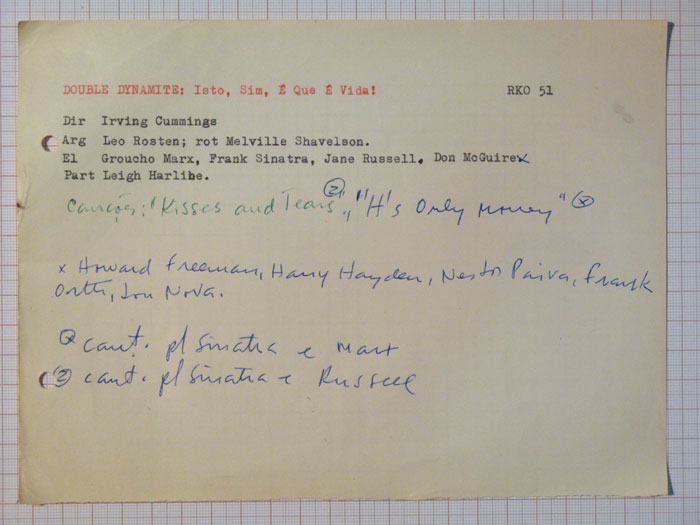 DOUBLE DYNAMITE: Isto, Sim, É Que É Vida! RKO 51
Dir Irving Cummings
Arg Leo Rosten; rot Melville Shavelson.
El Groucho Marx, Frank Sinatra, Jane Russell. Don McGuire x
Part Leigh Harlibe.
Canções: "Kisses and Tears" ②, "It's Only Money" ⓧ
x Howard Freeman, Harry Hayden, Nestor Paiva, Frank
Orth, Lou Nova.
ⓧ cant. p/ Sinatra e Marx
② cant. p/ Sinatra e Russell